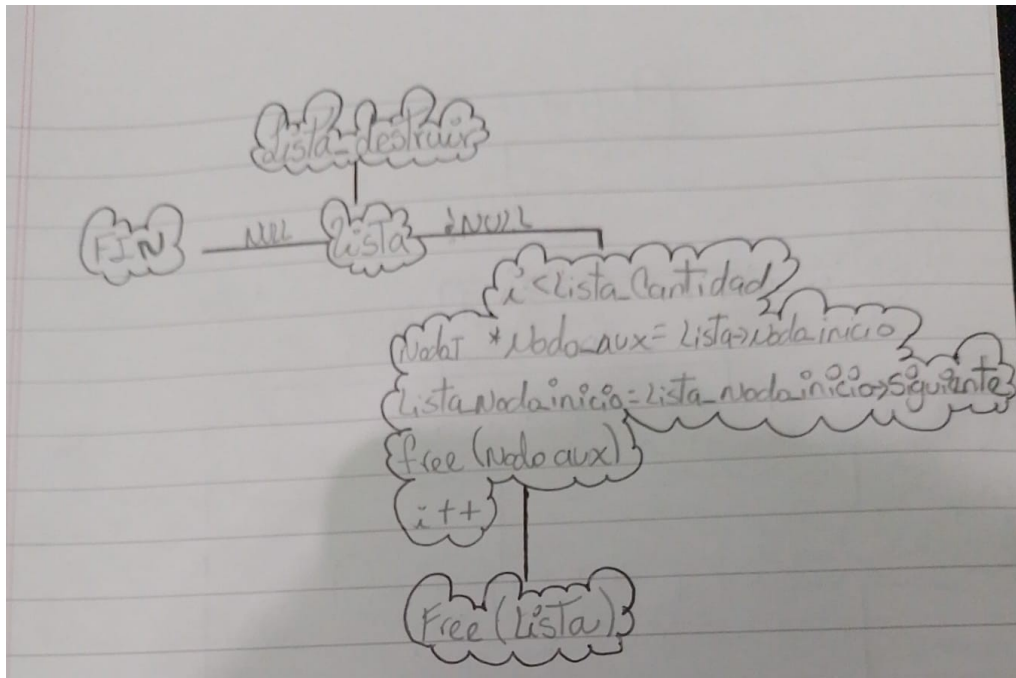 Lista_destruir
FIN
NULL
Lista
!NULL
i<Lista_Cantidad
NodoT *Nodo_aux= Lista->Nodo inicio
Lista Nodo inicio=Lista_Nodo inicio->siguiente
free (Nodo aux)
i++
Free (Lista)